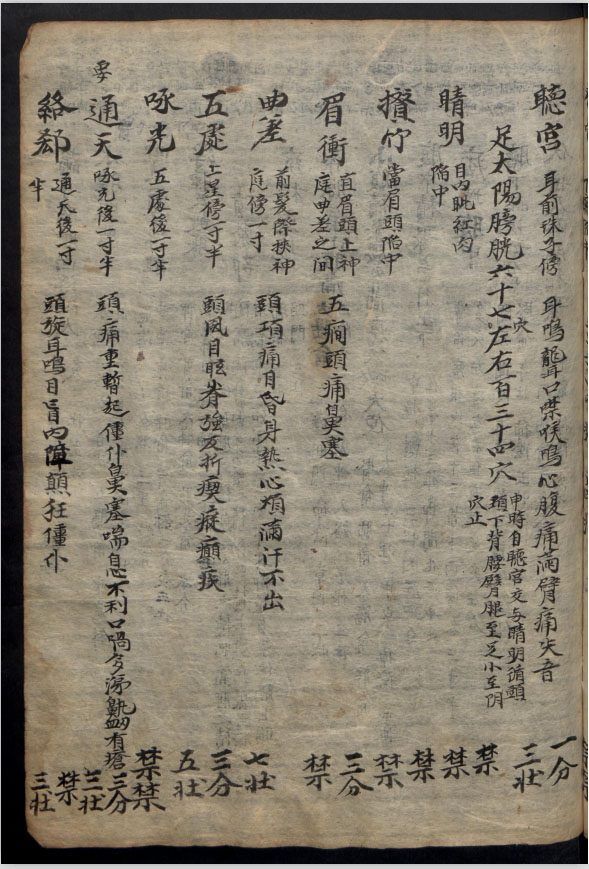 聽宮 耳前珠子傍 耳鳴聾口噤喉鳴心腹痛滿臂痛失音 一分 三壯
足太陽膀胱六十七穴左右百三十四穴 申時自聽宮交与睛明循頭頚下背腰臀腿至足小至阴穴止
睛明 目内眦紅肉陷中 禁 禁
攅竹 當眉頭陷中 禁 禁
眉衝 直眉頭上神庭曲差之间 五癎頭痛鼻塞 三分 禁
曲差 前髮際挾神庭傍一寸 頭項痛目昏身熱心煩滿汗不出 七壯
五處 上星傍一寸半 頭風目眩脊強反折瘈瘲癲疾 三分 五壯
㖨光 五處後一寸半 禁 禁
要 通天 㖨光後一寸半 頭痛重暫起僵仆鼻塞喘息不利口喎多涕鼽衄有瘡 三分 三壯
絡郄 通天後一寸半 頭旋耳鳴目盲内障顛狂僵仆 禁 三壯